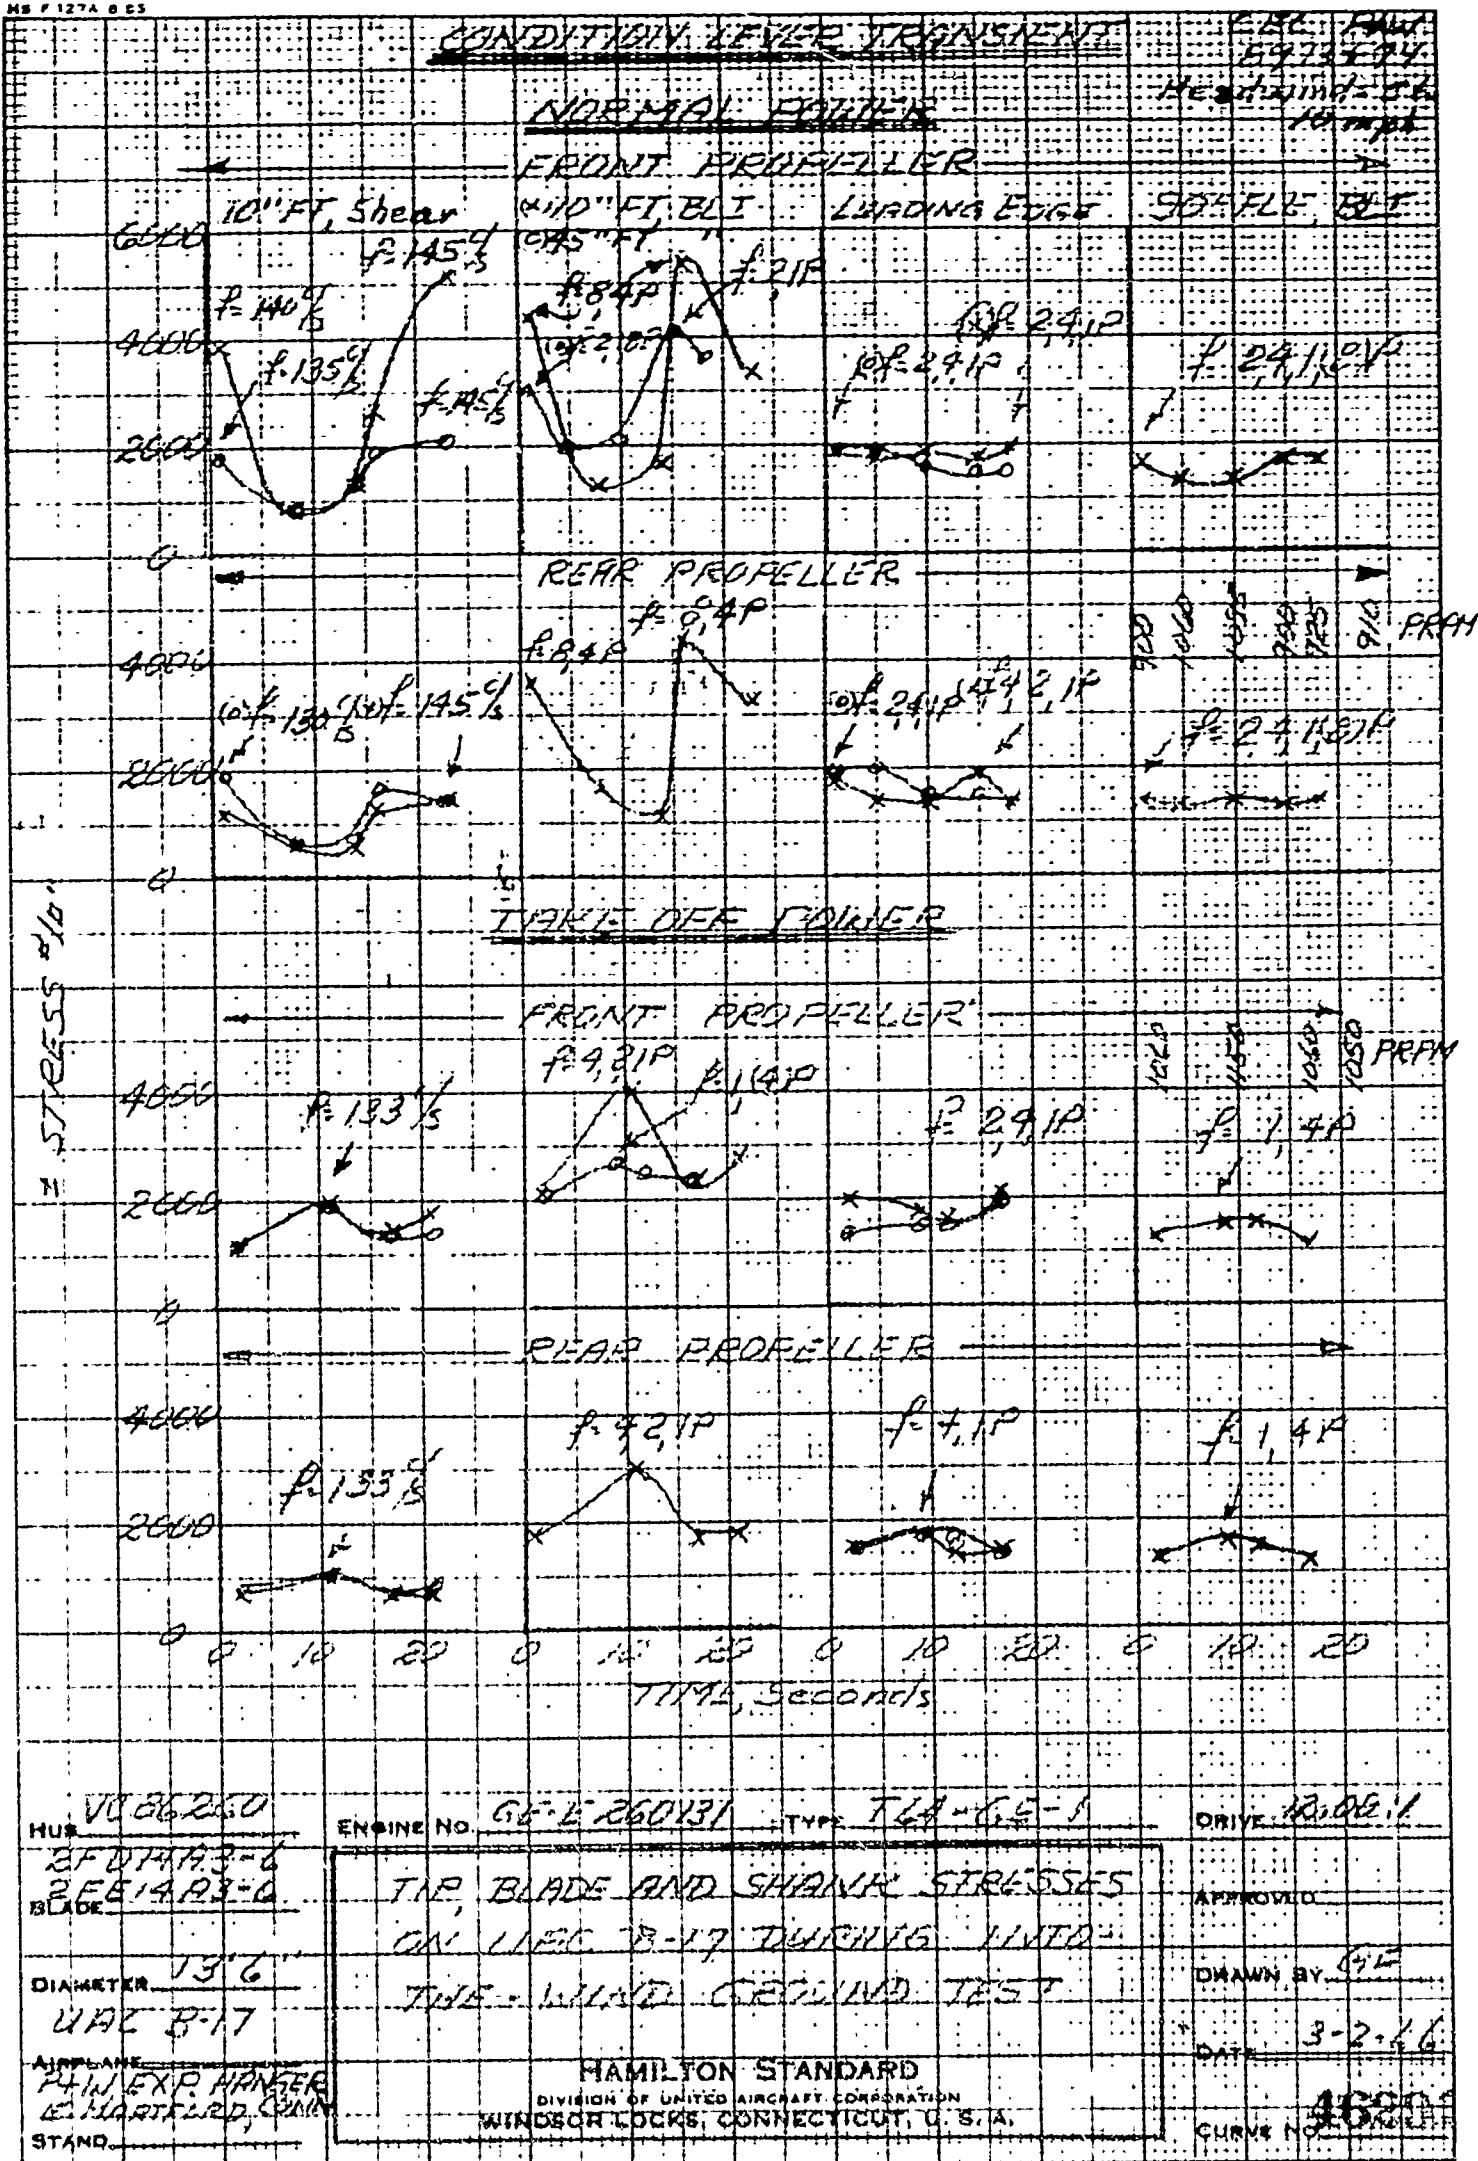 CONDITION LEVER TRANSIENT
NORMAL POWER
Headwind
10 mph
FRONT PROPELLER
10" FT, Shear
(x) 10" FT, BLT
(o) 45" FT "
LEADING EDGE
BLT
6000
4000
2000
0
f=140 c/s
f=135 c/s
f=145 c/s
f=145 c/s
f=8,4P
f=2,1P
(o)f=2,4,1P
(x)f=2,4,1P
f=2,4,1,(8)P
REAR PROPELLER
4000
2000
0
(o)f=130 c/s (x)f=145 c/s
f=8,4P
f=8,4P
(o)f=2,4,1P
(x)f=4,2,1P
f=2,4,1(8)P
900
1060
925
910
PRPM
± STRESS #/□"
TAKE OFF POWER
FRONT PROPELLER
4000
2000
0
f=133 c/s
f=4,2,1P
f=1,(4)P
f=2,4,1P
f=1,4P
1060
1150
1060
1050
PRPM
REAR PROPELLER
4000
2000
0
f=133 c/s
f=4,2,1P
f=4,1P
f=1,4P
0 10 20 0 10 20 0 10 20 0 10 20
TIME, Seconds
HUB VC86260
ENGINE NO. GE-E 260131 TYPE T64-GE-1
DRIVE
2FE14A3-6
BLADE
DIAMETER 13'6"
UAC B-17
AIRPLANE
P+W EXP. HANGER
E. HARTFORD, CONN
STAND
TIP, BLADE AND SHANK STRESSES
ON UAC B-17 DURING INTO-
THE-WIND GROUND TEST
HAMILTON STANDARD
DIVISION OF UNITED AIRCRAFT CORPORATION
WINDSOR LOCKS, CONNECTICUT, U. S. A.
APPROVED
DRAWN BY GE
DATE 3-2-66
CURVE NO.